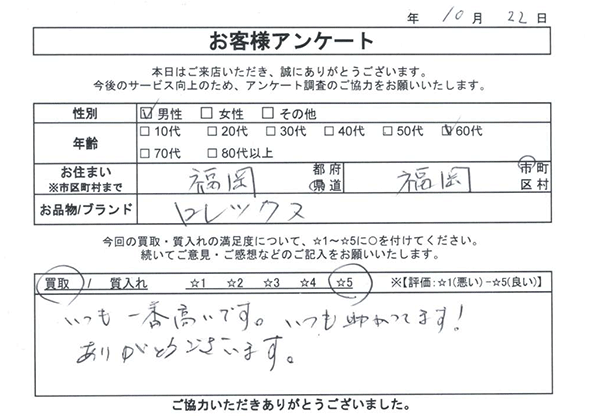 年 10 月 22 日
お客様アンケート
本日はご来店いただき、誠にありがとうございます。
今後のサービス向上のため、アンケート調査のご協力をお願いいたします。
性別 ☑男性 □女性 □その他
年齢 □10代 □20代 □30代 □40代 □50代 ☑60代
□70代 □80代以上
お住まい ※市区町村まで 福岡 都府県道 福岡 市町区村
お品物/ブランド ロレックス
今回の買取・質入れの満足度について、☆1～☆5に○を付けてください。
続いてご意見・ご感想などのご記入をお願いいたします。
買取 / 質入れ ☆1 ☆2 ☆3 ☆4 ☆5 ※【評価:☆1(悪い)−☆5(良い)】
いつも一番高いです。いつも助かってます!
ありがとうございます。
ご協力いただきありがとうございました。